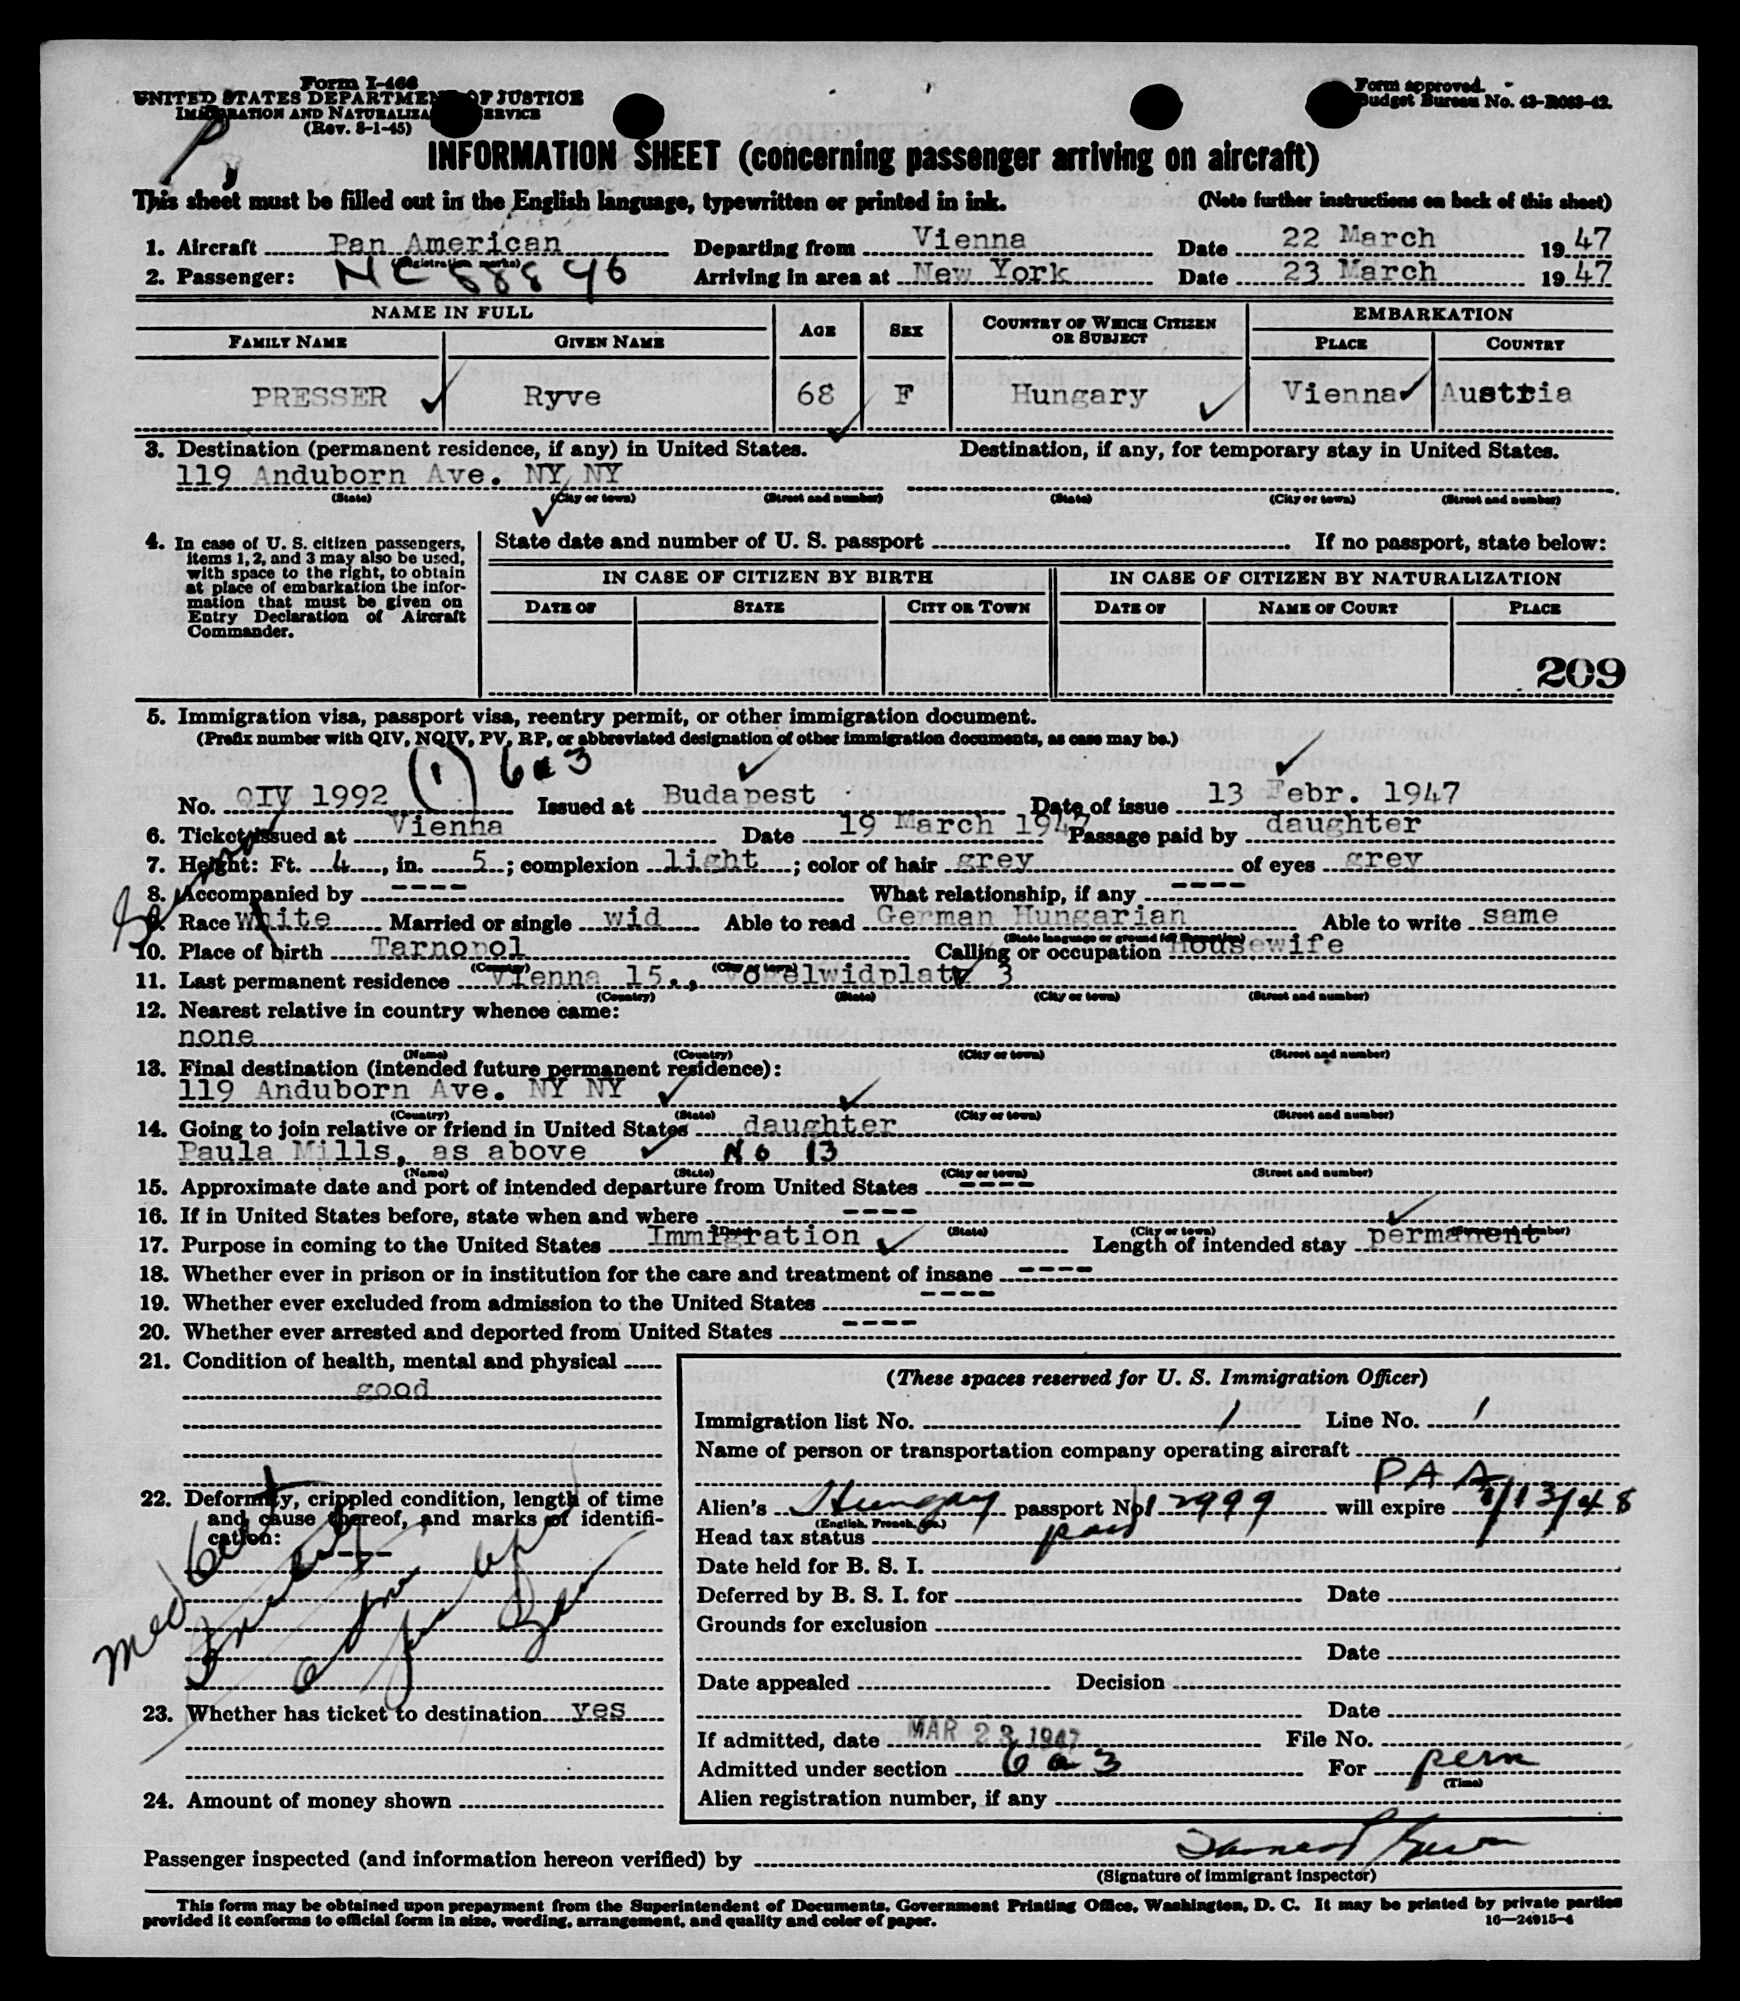 Form I-466
UNITED STATES DEPARTMENT OF JUSTICE
IMMIGRATION AND NATURALIZATION SERVICE
(Rev. 8-1-45)
Form approved.
Budget Bureau No. 43-R063-42.
INFORMATION SHEET (concerning passenger arriving on aircraft)
This sheet must be filled out in the English language, typewritten or printed in ink. (Note further instructions on back of this sheet)
1. Aircraft Pan American Departing from Vienna Date 22 March 1947
(Registration marks)
2. Passenger: NC 88846 Arriving in area at New York Date 23 March 1947
NAME IN FULL AGE SEX COUNTRY OF WHICH CITIZEN OR SUBJECT EMBARKATION
FAMILY NAME GIVEN NAME PLACE COUNTRY
PRESSER Ryve 68 F Hungary Vienna Austria
3. Destination (permanent residence, if any) in United States. Destination, if any, for temporary stay in United States.
119 Anduborn Ave. NY NY
(State) (City or town) (Street and number) (State) (City or town) (Street and number)
4. In case of U. S. citizen passengers, items 1, 2, and 3 may also be used, with space to the right, to obtain at place of embarkation the information that must be given on Entry Declaration of Aircraft Commander.
State date and number of U. S. passport If no passport, state below:
IN CASE OF CITIZEN BY BIRTH IN CASE OF CITIZEN BY NATURALIZATION
DATE OF STATE CITY OR TOWN DATE OF NAME OF COURT PLACE
209
5. Immigration visa, passport visa, reentry permit, or other immigration document.
(Prefix number with QIV, NQIV, PV, RP, or abbreviated designation of other immigration documents, as case may be.)
(1) 6a3
No. QIV 1992 Issued at Budapest Date of issue 13 Febr. 1947
6. Ticket issued at Vienna Date 19 March 1947 Passage paid by daughter
7. Height: Ft. 4, in. 5; complexion light; color of hair grey of eyes grey
8. Accompanied by ---- What relationship, if any ----
9. Race White Married or single wid Able to read German Hungarian Able to write same
(State language or ground for exemption)
10. Place of birth Tarnopol Calling or occupation Housewife
(Country) (City or town)
11. Last permanent residence Vienna 15., Vogelwidplatz 3
(Country) (State) (City or town) (Street and number)
12. Nearest relative in country whence came:
none
(Name) (Country) (City or town) (Street and number)
13. Final destination (intended future permanent residence):
119 Anduborn Ave. NY NY
(Country) (State) (City or town) (Street and number)
14. Going to join relative or friend in United States daughter
Paula Mills, as above No 13
(Name) (State) (City or town) (Street and number)
15. Approximate date and port of intended departure from United States ----
16. If in United States before, state when and where ----
(Date) (State) (City or town) (Street and number)
17. Purpose in coming to the United States Immigration Length of intended stay permanent
18. Whether ever in prison or in institution for the care and treatment of insane ----
19. Whether ever excluded from admission to the United States ----
20. Whether ever arrested and deported from United States ----
21. Condition of health, mental and physical
good
22. Deformity, crippled condition, length of time and cause thereof, and marks of identification:
----
23. Whether has ticket to destination yes
24. Amount of money shown
(These spaces reserved for U. S. Immigration Officer)
Immigration list No. 1 Line No. 1
Name of person or transportation company operating aircraft
PAA
Alien's Hungary passport No. 12999 will expire 1/13/48
(English, French, etc.)
Head tax status paid
Date held for B. S. I.
Deferred by B. S. I. for Date
Grounds for exclusion
Date
Date appealed Decision
Date
If admitted, date MAR 23 1947 File No.
Admitted under section 6a3 For perm
(Time)
Alien registration number, if any
Passenger inspected (and information hereon verified) by
(Signature of immigrant inspector)
This form may be obtained upon prepayment from the Superintendent of Documents, Government Printing Office, Washington, D. C. It may be printed by private parties
provided it conforms to official form in size, wording, arrangement, and quality and color of paper. 16—24915-4